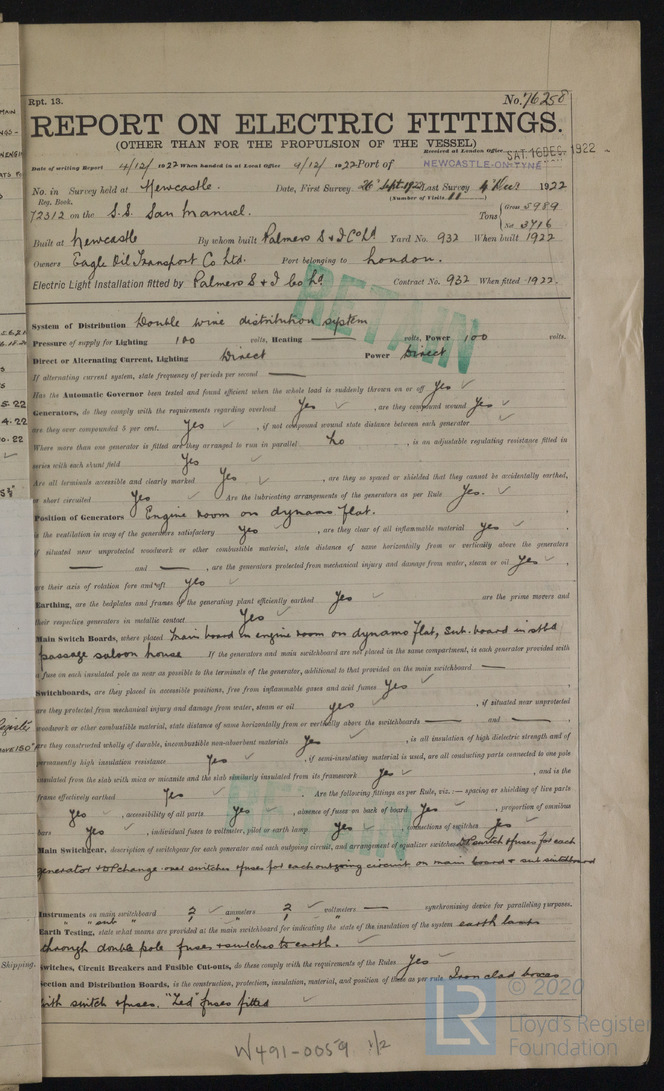 Rpt. 13.
No. 76258
REPORT ON ELECTRIC FITTINGS.
(OTHER THAN FOR THE PROPULSION OF THE VESSEL)
Received at London Office SAT. 16 DEC. 1922
Date of writing Report 4/12/1922 When handed in at Local Office 9/12/1922 Port of NEWCASTLE-ON-TYNE
No. in Survey held at Newcastle. Date, First Survey 26th Sept. 1922 Last Survey 4 Dec 1922
Reg. Book. (Number of Visits 11)
72312 on the S.S. San Manuel. Tons { Gross 5989
Net 3716
Built at Newcastle By whom built Palmers S & I Co Ld Yard No. 932 When built 1922
Owners Eagle Oil Transport Co Ltd. Port belonging to London.
Electric Light Installation fitted by Palmers S & I Co Ld Contract No. 932 When fitted 1922.
RETAIN
System of Distribution Double wire distribution system
Pressure of supply for Lighting 100 volts, Heating — volts, Power 100 volts.
Direct or Alternating Current, Lighting Direct Power Direct
If alternating current system, state frequency of periods per second —
Has the Automatic Governor been tested and found efficient when the whole load is suddenly thrown on or off Yes ✓
Generators, do they comply with the requirements regarding overload Yes ✓ , are they compound wound Yes ✓
are they over compounded 5 per cent. Yes ✓ , if not compound wound state distance between each generator
Where more than one generator is fitted are they arranged to run in parallel No , is an adjustable regulating resistance fitted in
series with each shunt field Yes ✓
Are all terminals accessible and clearly marked Yes ✓ , are they so spaced or shielded that they cannot be accidentally earthed,
or short circuited Yes ✓ Are the lubricating arrangements of the generators as per Rule Yes. ✓
Position of Generators Engine room on dynamo flat.
is the ventilation in way of the generators satisfactory Yes ✓ , are they clear of all inflammable material Yes ✓
if situated near unprotected woodwork or other combustible material, state distance of same horizontally from or vertically above the generators
— and — , are the generators protected from mechanical injury and damage from water, steam or oil Yes ✓
are their axis of rotation fore and aft Yes ✓
Earthing, are the bedplates and frames of the generating plant efficiently earthed Yes ✓ are the prime movers and
their respective generators in metallic contact Yes ✓
Main Switch Boards, where placed Main board in engine room on dynamo flat, Sub. board in stbd
passage saloon house If the generators and main switchboard are not placed in the same compartment, is each generator provided with
a fuse in each insulated pole as near as possible to the terminals of the generator, additional to that provided on the main switchboard —
Switchboards, are they placed in accessible positions, free from inflammable gases and acid fumes Yes ✓
are they protected from mechanical injury and damage from water, steam or oil Yes ✓ , if situated near unprotected
woodwork or other combustible material, state distance of same horizontally from or vertically above the switchboards — and — ,
are they constructed wholly of durable, incombustible non-absorbent materials Yes ✓ , is all insulation of high dielectric strength and of
permanently high insulation resistance Yes ✓ , if semi-insulating material is used, are all conducting parts connected to one pole
insulated from the slab with mica or micanite and the slab similarly insulated from its framework Yes ✓ , and is the
frame effectively earthed Yes ✓ . Are the following fittings as per Rule, viz.:— spacing or shielding of live parts
Yes ✓ , accessibility of all parts Yes ✓ , absence of fuses on back of board Yes ✓ , proportion of omnibus
bars Yes ✓ , individual fuses to voltmeter, pilot or earth lamp Yes ✓ connections of switches Yes ✓
RETAIN
Main Switchgear, description of switchgear for each generator and each outgoing circuit, and arrangement of equalizer switches DP switch & fuses for each
generator & DP change over switches & fuses for each outgoing circuit on main board & sub switchboard
Instruments on main switchboard 2 ✓ ammeters 2 ✓ voltmeters — synchronising device for paralleling purposes.
" " sub " 1 " 1 "
Earth Testing, state what means are provided at the main switchboard for indicating the state of the insulation of the system earth lamps
through double pole fuses & switches to earth. ✓
Switches, Circuit Breakers and Fusible Cut-outs, do these comply with the requirements of the Rules Yes ✓
Section and Distribution Boards, is the construction, protection, insulation, material, and position of these as per rule Iron clad boxes
with switch & fuses. "Zed" fuses fitted ✓
W491-0059 1/2
© 2020
LR
Lloyd's Register
Foundation